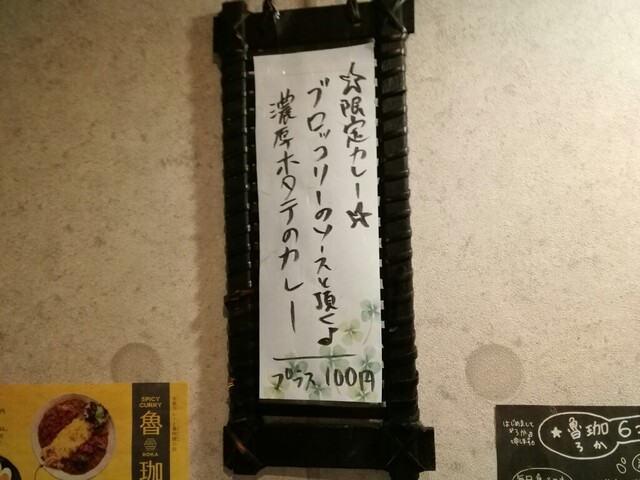 ☆限定カレー☆
ブロッコリーのソースと頂く♪
濃厚ホタテのカレー
プラス100円
SPICY
CURRY
魯
ROKA
珈
はじめまして
★魯珈
ろか